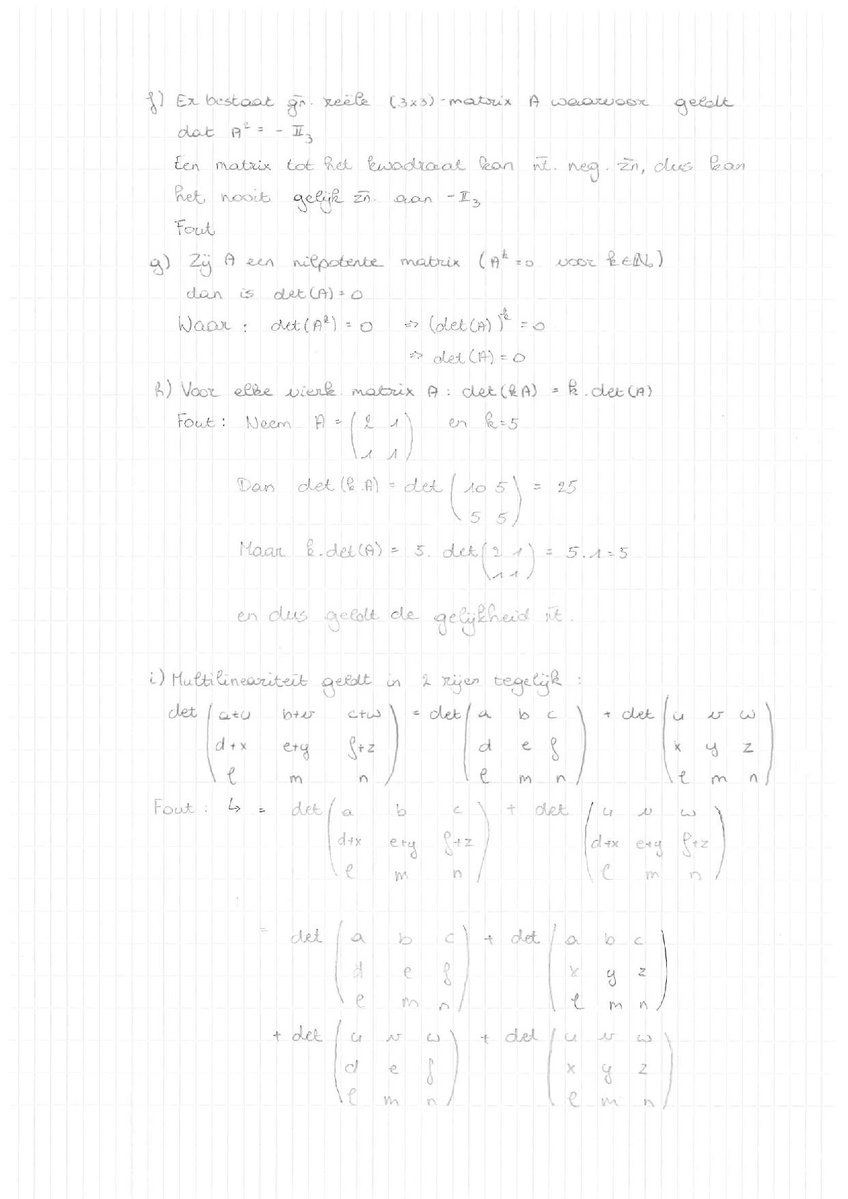 f) Er bestaat gn̄. reële (3x3)-matrix A waarvoor geldt
dat A² = - 𝕀₃
Een matrix tot het kwadraat kan nt̄. neg. zn̄, dus kan
het nooit gelijk zn̄. aan -𝕀₃
Fout
g) Zij A een nilpotente matrix (Aᵏ = 0 voor k∈ℕ₀)
dan is det(A) = 0
Waar : det(Aᵏ) = 0 => (det(A))ᵏ = 0
=> det(A) = 0
h) Voor elke vierk. matrix A : det(kA) = k.det(A)
Fout : Neem A = ( 2 1 ) en k=5
1 1
Dan det(k.A) = det ( 10 5 ) = 25
5 5
Maar k.det(A) = 5. det ( 2 1 ) = 5.1 = 5
1 1
en dus geldt de gelijkheid nt̄.
i) Multilineariteit geldt in 2 rijen tegelijk :
det ( a+u b+v c+w ) = det ( a b c ) + det ( u v w )
d+x e+y f+z d e f x y z
l m n l m n l m n
Fout : ↳ = det ( a b c ) + det ( u v w )
d+x e+y f+z d+x e+y f+z
l m n l m n
= det ( a b c ) + det ( a b c )
d e f x y z
l m n l m n
+ det ( u v w ) + det ( u v w )
d e f x y z
l m n l m n